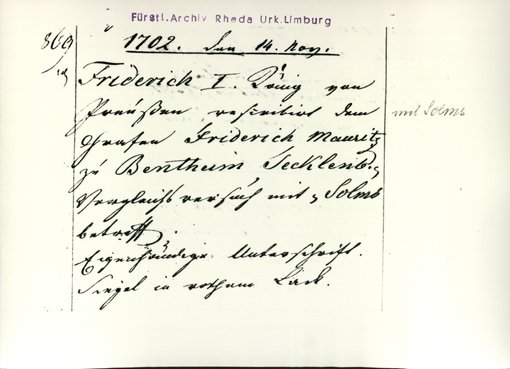 Fürstl. Archiv Rheda Urk. Limburg
869
1702. den 14. Nov.
Friderich I. König von
Preußen rescribirt dem
Grafen Friderich Mauritz
zu Bentheim Tecklenb.,
Vergleichsversuch mit Solms
betreff.
Eigenhändige Unterschrift.
Siegel in rothem Lack.
mit Solms